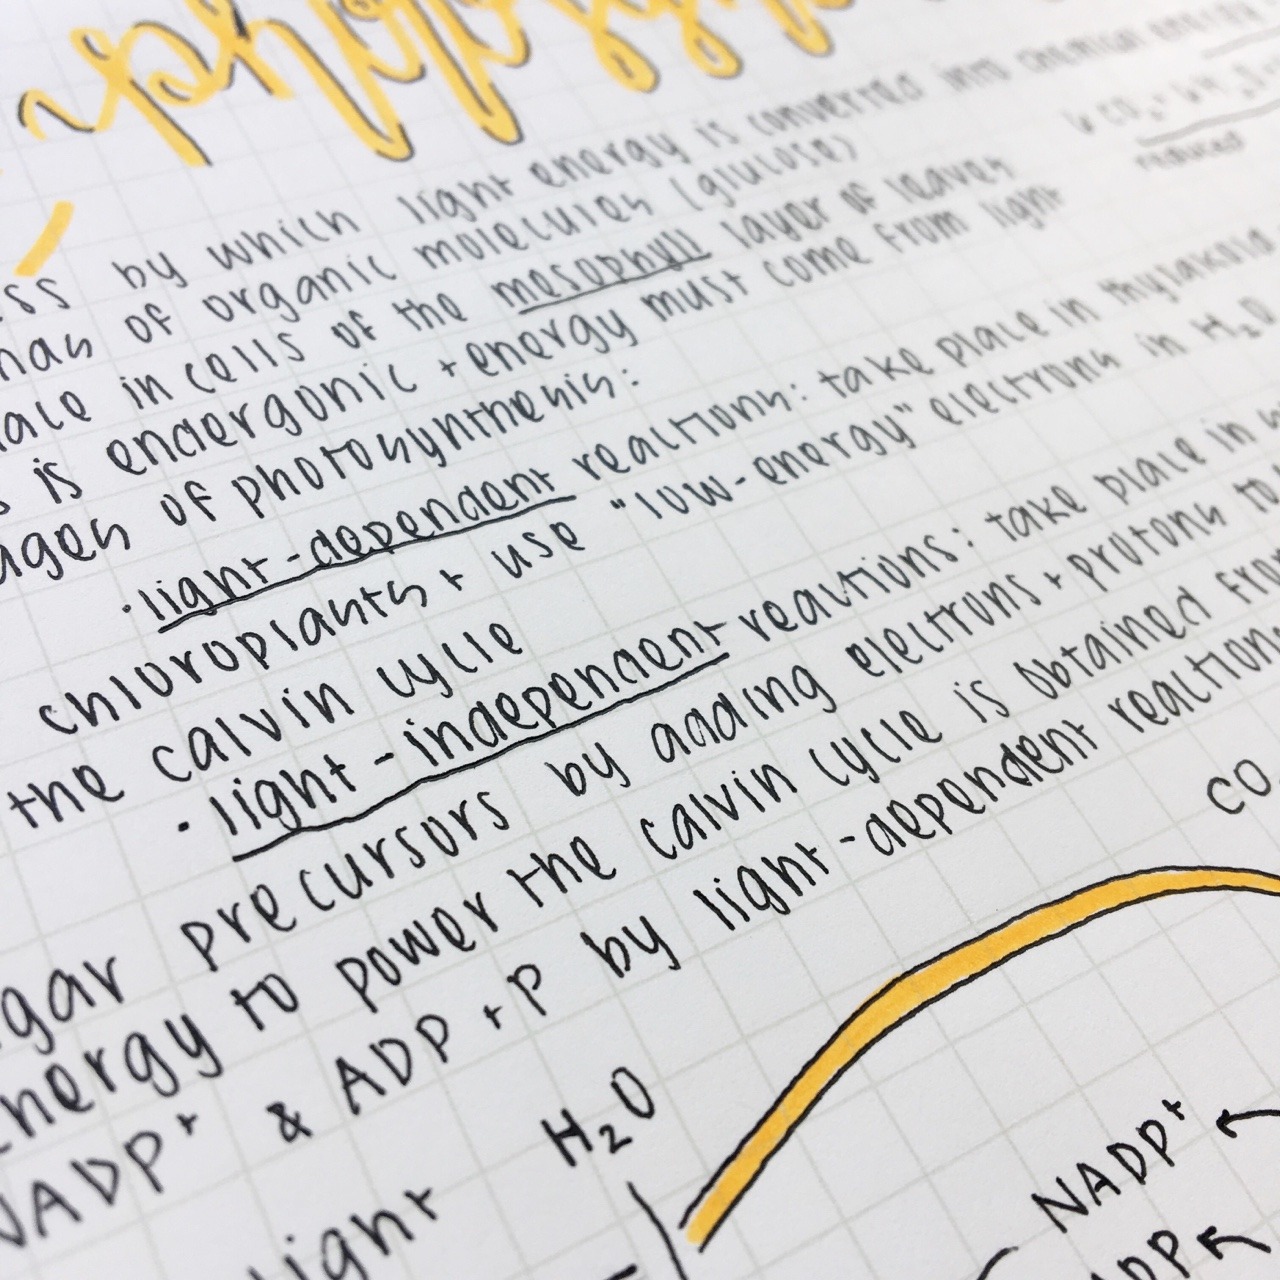 by which light energy is converted into chemical energy
of organic molecules (glucose)
in cells of the mesophyll layer of leaves
is endergonic + energy must come from light
of photosynthesis:
· light-dependent reactions: take place in thylakoid
chloroplasts + use "low-energy" electrons in H₂O
the calvin cycle
· light-independent reactions: take place in
precursors by adding electrons + protons to
energy to power the calvin cycle is obtained from
NADP⁺ & ADP + P by light-dependent reactions
6 CO₂ + 6 H₂O
reduced
CO
H₂O
light
NADP⁺